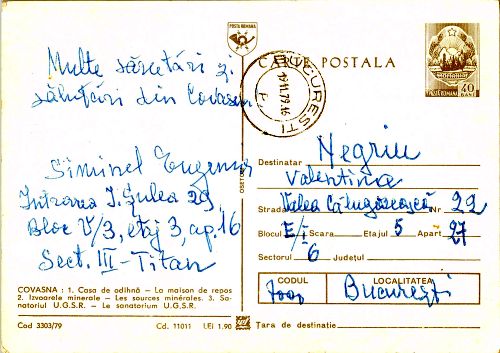 POSTA ROMANA
CARTE POSTALA
POSTA ROMANA 40 BANI
BUCURESTI
19.11.79.16
Multe sărutări și
salutări din Covasna
Siminel Eugenia
Intrarea I. Șulea 29
Bloc V/3, etaj 3, ap. 16
Sect. III - Titan
Destinatar Negriu
Valentina
Strada Valea Călugărească Nr 22
Blocul E/I Scara Etajul 5 Apart 27
Sectorul 6 Județul
CODUL LOCALITATEA
7000 București
Țara de destinație
COVASNA : 1. Casa de odihnă — La maison de repos
2. Izvoarele minerale — Les sources minérales. 3. Sa-
natoriul U.G.S.R. — Le sanatorium U.G.S.R.
Cod 3303/79 Cd. 11011 LEI 1.90